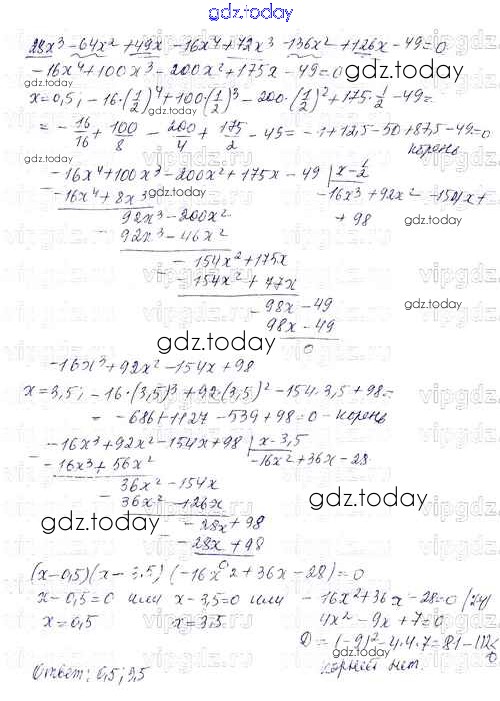 gdz.today
28x³ - 64x² + 49x - 16x⁴ + 72x³ - 136x² + 126x - 49 = 0
-16x⁴ + 100x³ - 200x² + 175x - 49 = 0
x = 0,5; -16·(1/2)⁴ + 100·(1/2)³ - 200·(1/2)² + 175·1/2 - 49 =
= -16/16 + 100/8 - 200/4 + 175/2 - 49 = -1 + 12,5 - 50 + 87,5 - 49 = 0
корень
-16x⁴ + 100x³ - 200x² + 175x - 49 | x - 1/2
-16x⁴ + 8x³ -16x³ + 92x² - 154x +
+ 98
92x³ - 200x²
92x³ - 46x²
-154x² + 175x
-154x² + 77x
98x - 49
98x - 49
0
-16x³ + 92x² - 154x + 98
x = 3,5; -16·(3,5)³ + 92·(3,5)² - 154·3,5 + 98 =
= -686 + 1127 - 539 + 98 = 0 - корень
-16x³ + 92x² - 154x + 98 | x - 3,5
-16x³ + 56x² -16x² + 36x - 28
36x² - 154x
36x² - 126x
-28x + 98
-28x + 98
0
(x - 0,5)(x - 3,5)(-16x² + 36x - 28) = 0
x - 0,5 = 0 или x - 3,5 = 0 или -16x² + 36x - 28 = 0
x = 0,5 x = 3,5 4x² - 9x + 7 = 0
D = (-9)² - 4·4·7 = 81 - 112 < 0
корней нет.
Ответ: 0,5; 3,5